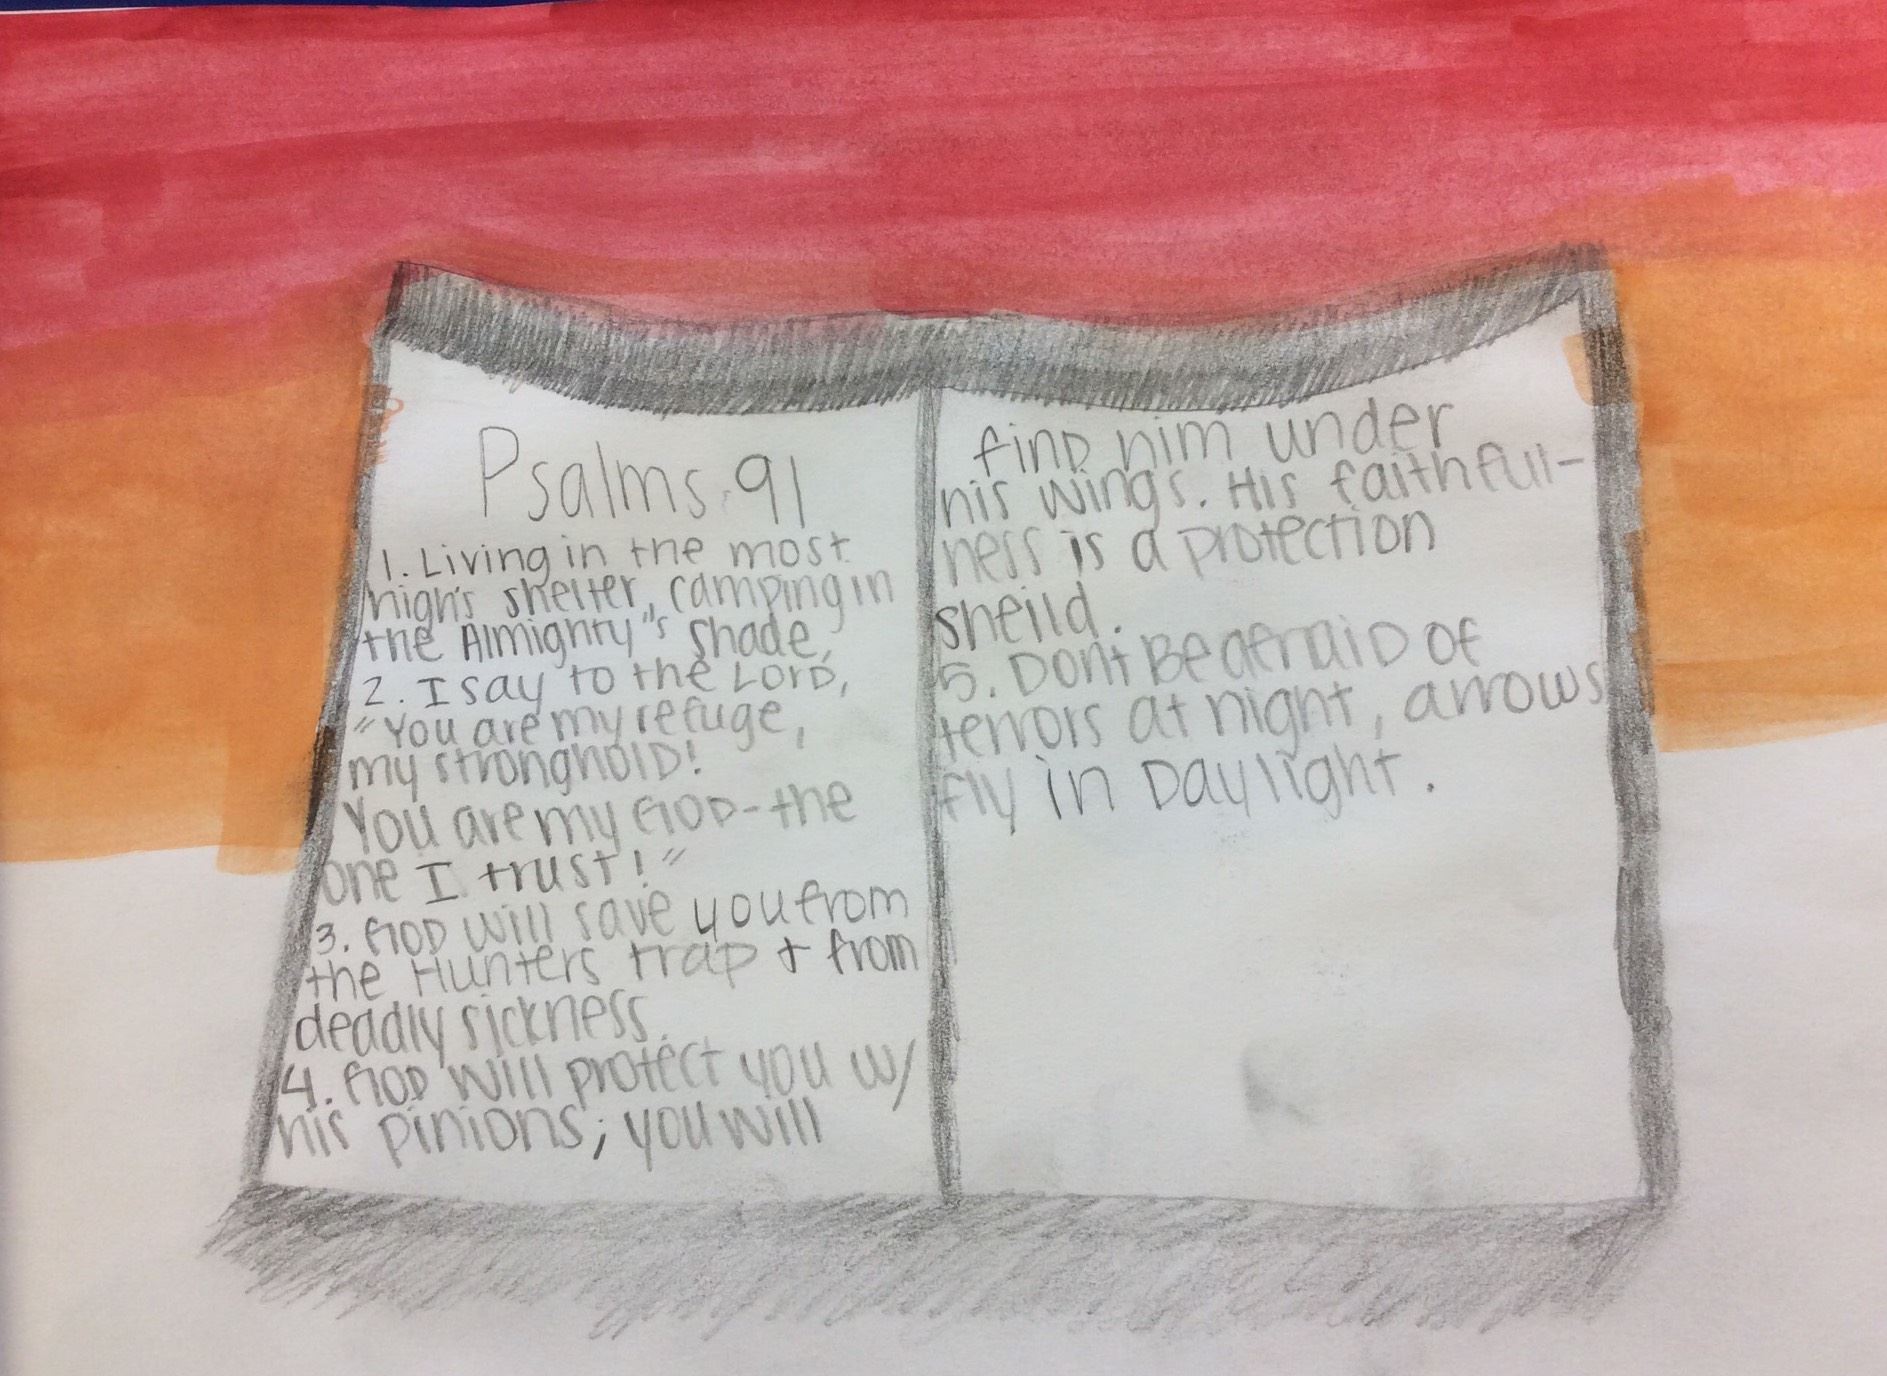 Psalms 91
1. Living in the most
high's shelter, camping in
the Almighty"s shade,
2. I say to the LORD,
"You are my refuge,
my stronghold!
You are my GOD-the
one I trust!"
3. GOD will save you from
the Hunters trap + from
deadly sickness.
4. GOD will protect you w/
his pinions; you will
find him under
his wings. His faithfull-
ness is a protection
sheild.
5. Dont Be afraid of
terrors at night, arrows
fly in Daylight.